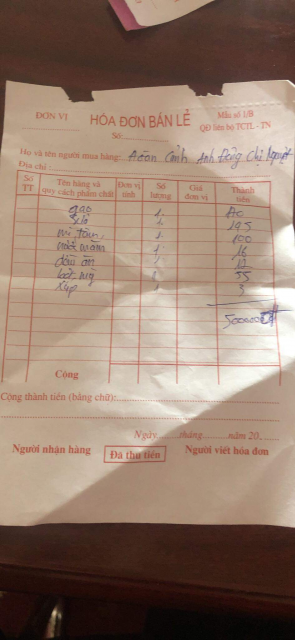 ĐƠN VỊ HÓA ĐƠN BÁN LẺ Mẫu số 1/B
Số: QĐ liên bộ TCTL - TN
Họ và tên người mua hàng: Cảnh Anh Dũng Chị Nguyệt
Địa chỉ:
Số TT Tên hàng và quy cách phẩm chất Đơn vị tính Số lượng Giá đơn vị Thành tiền
gạo 1
195
mì tôm 1 100
nước mắm 1 16
dầu ăn 1
bột 55
3
500000đ
Cộng
Cộng thành tiền (bằng chữ):
Ngày tháng năm 20
Người nhận hàng Đã thu tiền Người viết hóa đơn